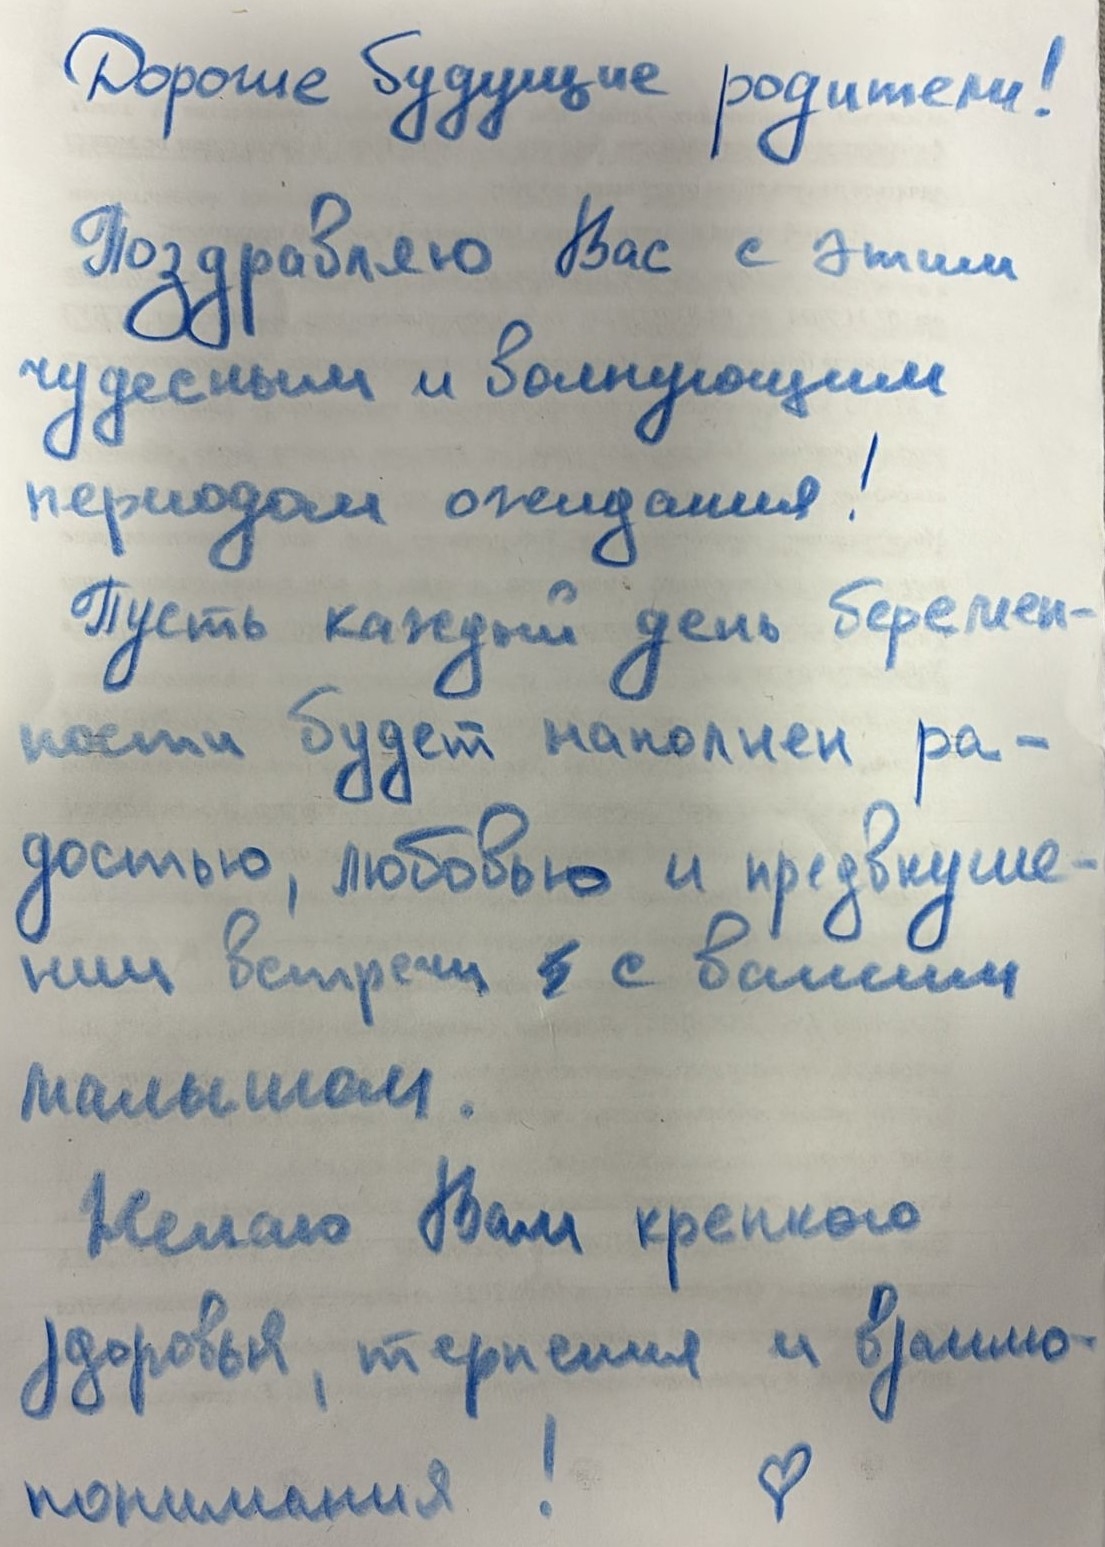 Дорогие будущие родители!
Поздравляю Вас с этим
чудесным и волнующим
периодом ожидания!
Пусть каждый день беремен-
ности будет наполнен ра-
достью, любовью и предвкуше-
нии встречи с вашим
малышом.
Желаю Вам крепкого
здоровья, терпения и взаимо-
понимания!